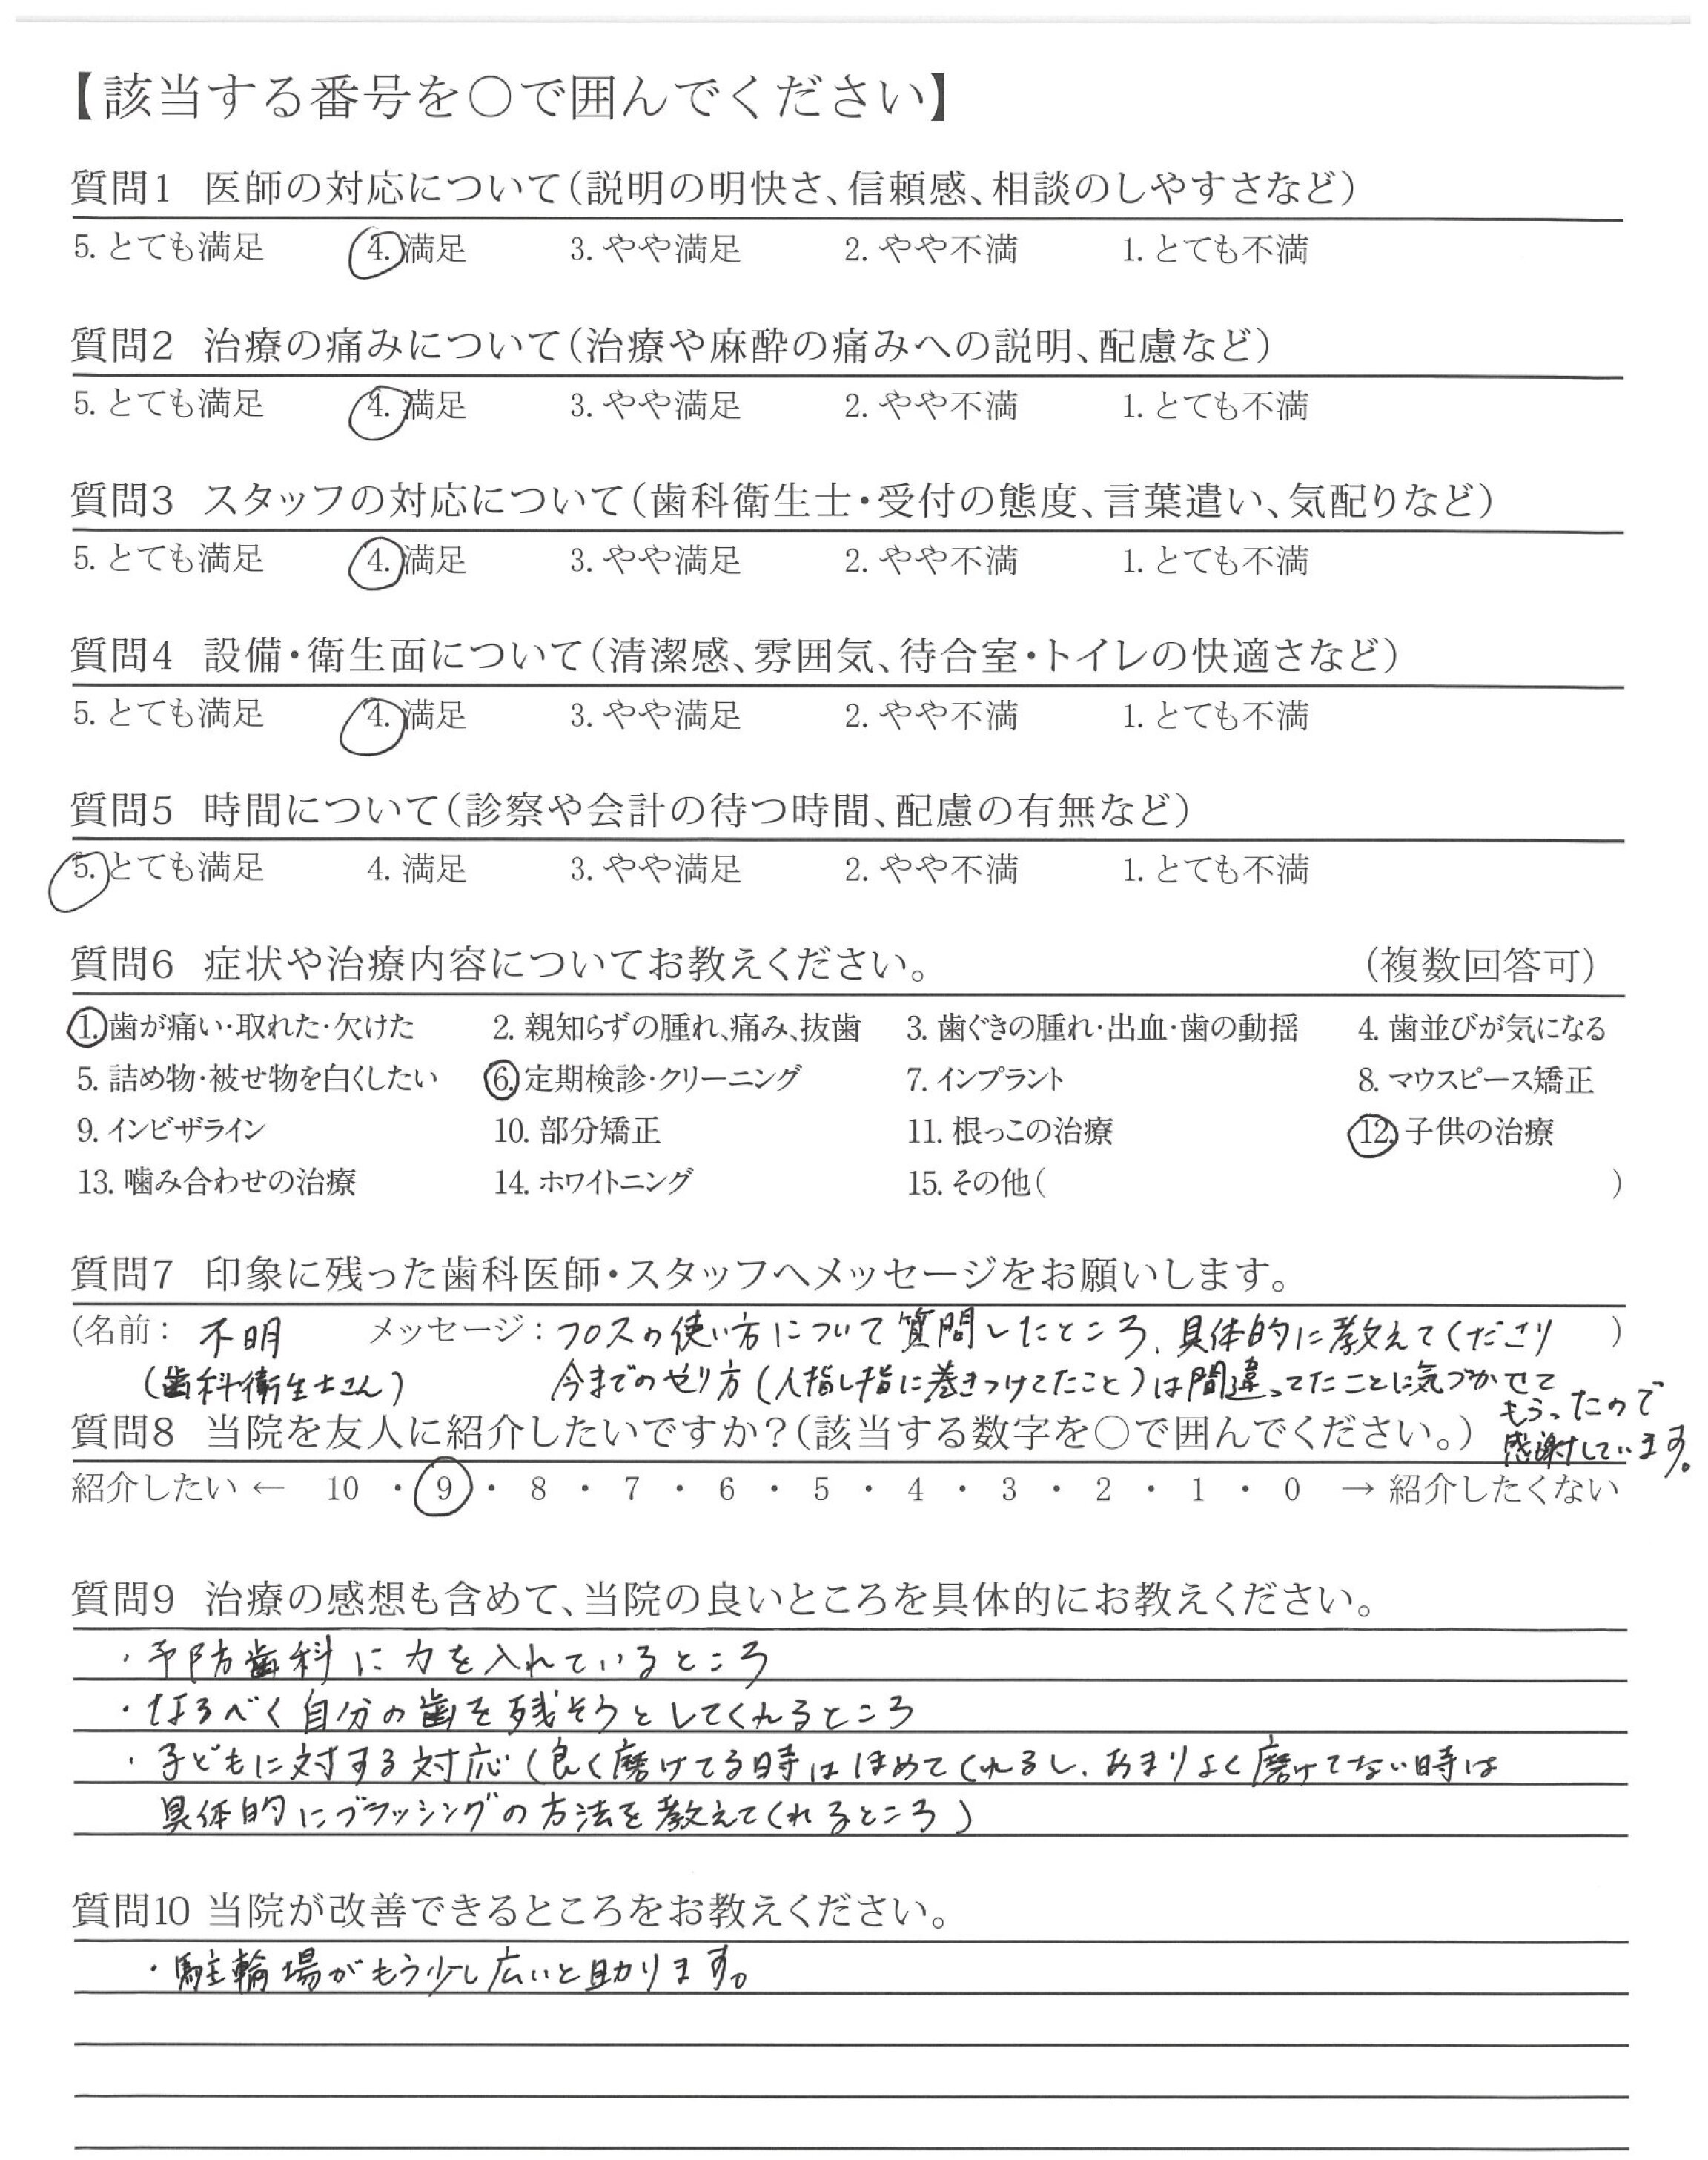 【該当する番号を○で囲んでください】
質問1 医師の対応について(説明の明快さ、信頼感、相談のしやすさなど)
5. とても満足 4. 満足 3. やや満足 2. やや不満 1. とても不満
質問2 治療の痛みについて(治療や麻酔の痛みへの説明、配慮など)
5. とても満足 4. 満足 3. やや満足 2. やや不満 1. とても不満
質問3 スタッフの対応について(歯科衛生士・受付の態度、言葉遣い、気配りなど)
5. とても満足 4. 満足 3. やや満足 2. やや不満 1. とても不満
質問4 設備・衛生面について(清潔感、雰囲気、待合室・トイレの快適さなど)
5. とても満足 4. 満足 3. やや満足 2. やや不満 1. とても不満
質問5 時間について(診察や会計の待つ時間、配慮の有無など)
5. とても満足 4. 満足 3. やや満足 2. やや不満 1. とても不満
質問6 症状や治療内容についてお教えください。 (複数回答可)
1. 歯が痛い・取れた・欠けた 2. 親知らずの腫れ、痛み、抜歯 3. 歯ぐきの腫れ・出血・歯の動揺 4. 歯並びが気になる
5. 詰め物・被せ物を白くしたい 6. 定期検診・クリーニング 7. インプラント 8. マウスピース矯正
9. インビザライン 10. 部分矯正 11. 根っこの治療 12. 子供の治療
13. 噛み合わせの治療 14. ホワイトニング 15. その他( )
質問7 印象に残った歯科医師・スタッフへメッセージをお願いします。
(名前: 不明 メッセージ: フロスの使い方について質問したところ、具体的に教えてくださり )
(歯科衛生士さん) 今までのやり方(人指し指に巻きつけてたこと)は間違ってたことに気づかせて
もらったので
感謝しています。
質問8 当院を友人に紹介したいですか?(該当する数字を○で囲んでください。)
紹介したい ← 10 ・ 9 ・ 8 ・ 7 ・ 6 ・ 5 ・ 4 ・ 3 ・ 2 ・ 1 ・ 0 → 紹介したくない
質問9 治療の感想も含めて、当院の良いところを具体的にお教えください。
・予防歯科に力を入れているところ
・なるべく自分の歯を残そうとしてくれるところ
・子どもに対する対応(良く磨けてる時はほめてくれるし、あまりよく磨けてない時は
具体的にブラッシングの方法を教えてくれるところ)
質問10 当院が改善できるところをお教えください。
・駐輪場がもう少し広いと助かります。